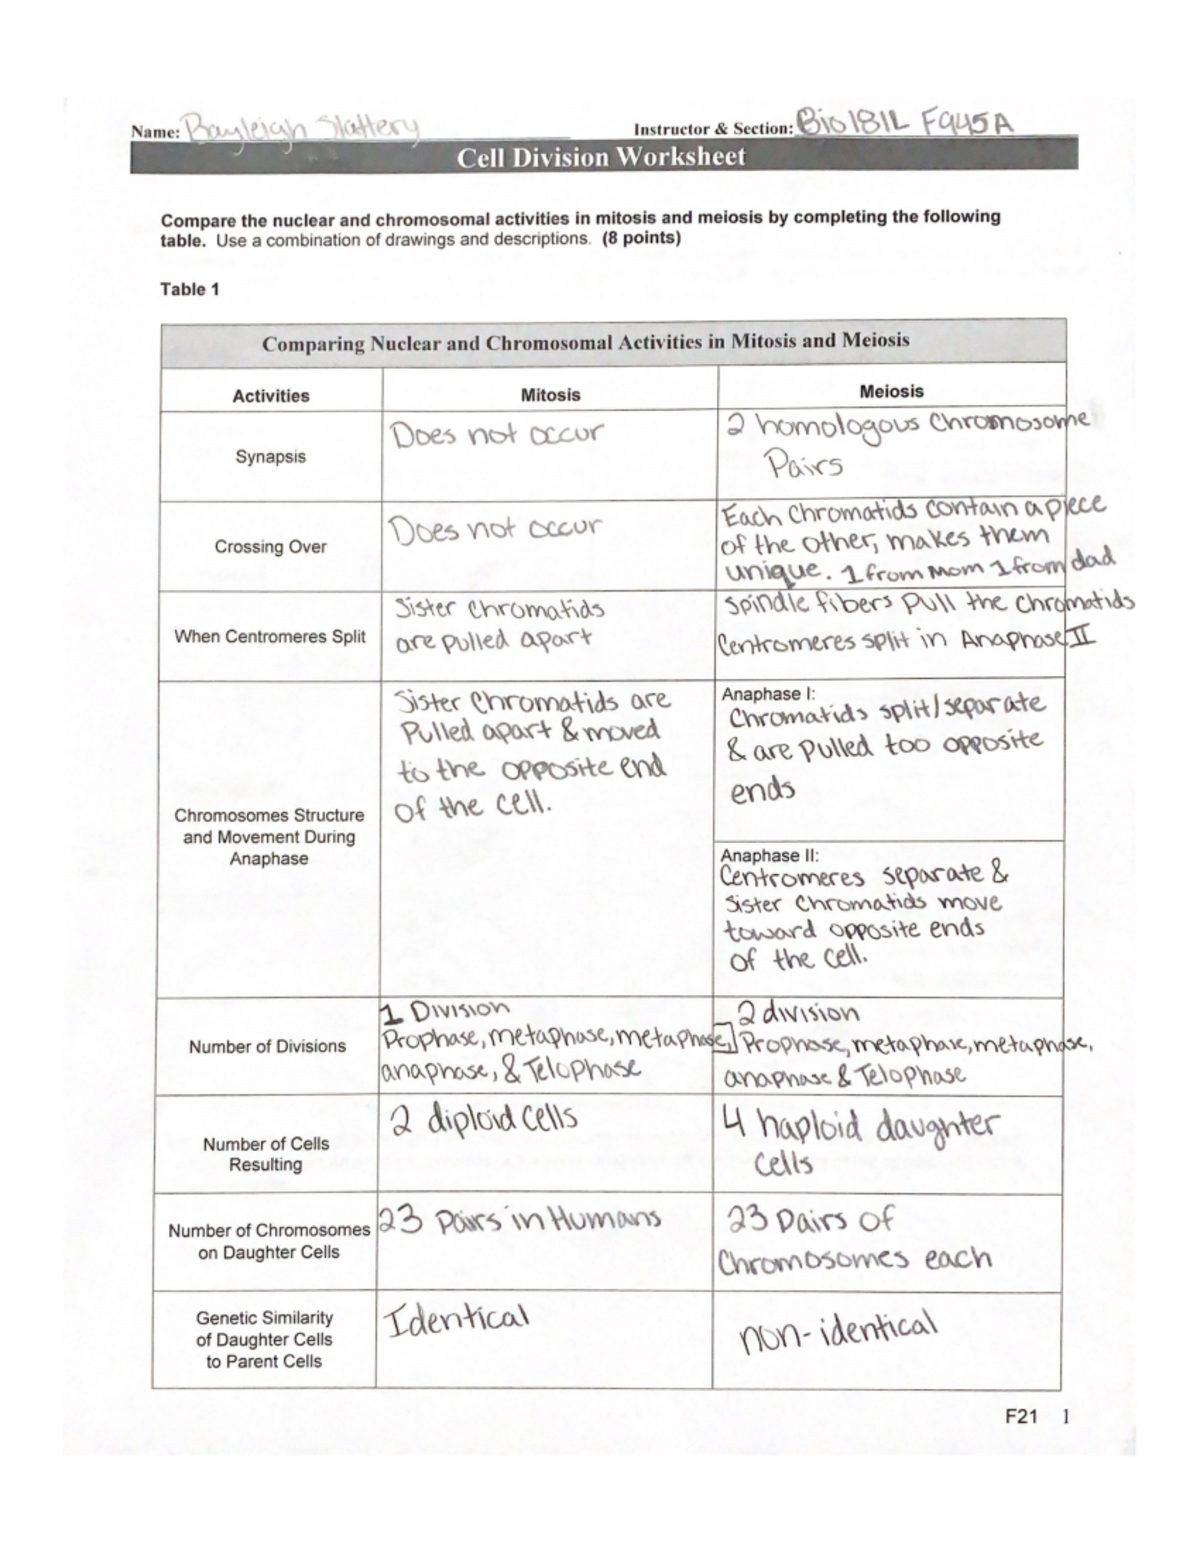 Name: Bayleigh Slattery Instructor & Section: Bio181L F945A
Cell Division Worksheet
Compare the nuclear and chromosomal activities in mitosis and meiosis by completing the following
table. Use a combination of drawings and descriptions. (8 points)
Table 1
Comparing Nuclear and Chromosomal Activities in Mitosis and Meiosis
Activities Mitosis Meiosis
Synapsis
Does not occur
2 homologous Chromosome
Pairs
Crossing Over
Does not occur
Each Chromatids contain a piece
of the other, makes them
unique. 1 from Mom 1 from dad
When Centromeres Split
Sister Chromatids
are pulled apart
Spindle fibers pull the chromatids
Centromeres split in Anaphase II
Chromosomes Structure
and Movement During
Anaphase
Sister Chromatids are
Pulled apart & moved
to the opposite end
of the cell.
Anaphase I:
Chromatids split/separate
& are pulled too opposite
ends
Anaphase II:
Centromeres separate &
Sister Chromatids move
toward opposite ends
of the cell.
Number of Divisions
1 Division
Prophase, metaphase, metaphase,
anaphase, & Telophase
2 division
Prophase, metaphase, metaphase,
anaphase & Telophase
Number of Cells
Resulting
2 diploid cells
4 haploid daughter
cells
Number of Chromosomes
on Daughter Cells
23 pairs in Humans
23 Pairs of
Chromosomes each
Genetic Similarity
of Daughter Cells
to Parent Cells
Identical
non-identical
F21 1